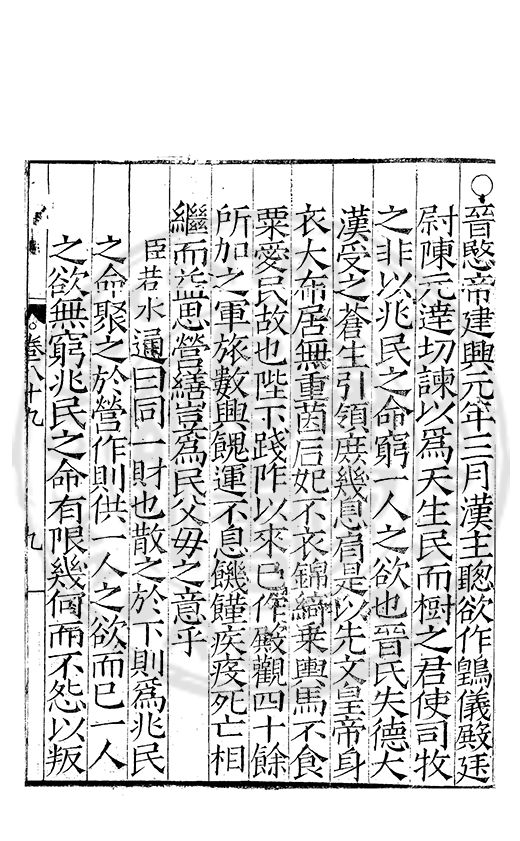 ○晉愍帝建興元年三月漢主聰欲作䳨儀殿廷
尉陳元達切諫以爲天生民而樹之君使司牧
之非以兆民之命窮一人之欲也晉氏失德大
漢受之蒼生引領庶幾息肩是以先文皇帝身
衣大布居無重茵后妃不衣錦綺乗輿馬不食
粟愛民故也陛下踐阼以來已作殿觀四十餘
所加之軍旅數興餽運不息饑饉疾疫死亡相
繼而益思營繕豈爲民父毋之意乎
臣若水通曰同一財也散之於下則爲兆民
之命聚之於營作則供一人之欲而已一人
之欲無窮兆民之命有限幾何而不怨以叛
卷八十九
九